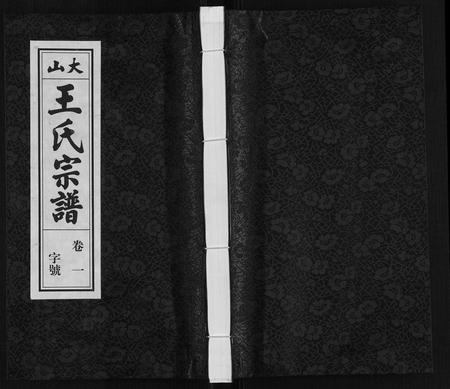 大山
王氏宗譜
卷一
字號